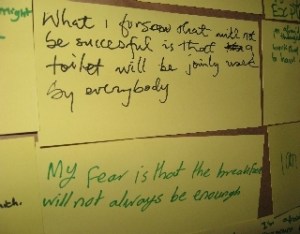 What I forsaw that will not
be succesful is that
toilet will be joinly used
by everybody
My fear is that the breakfast
will not always be enough